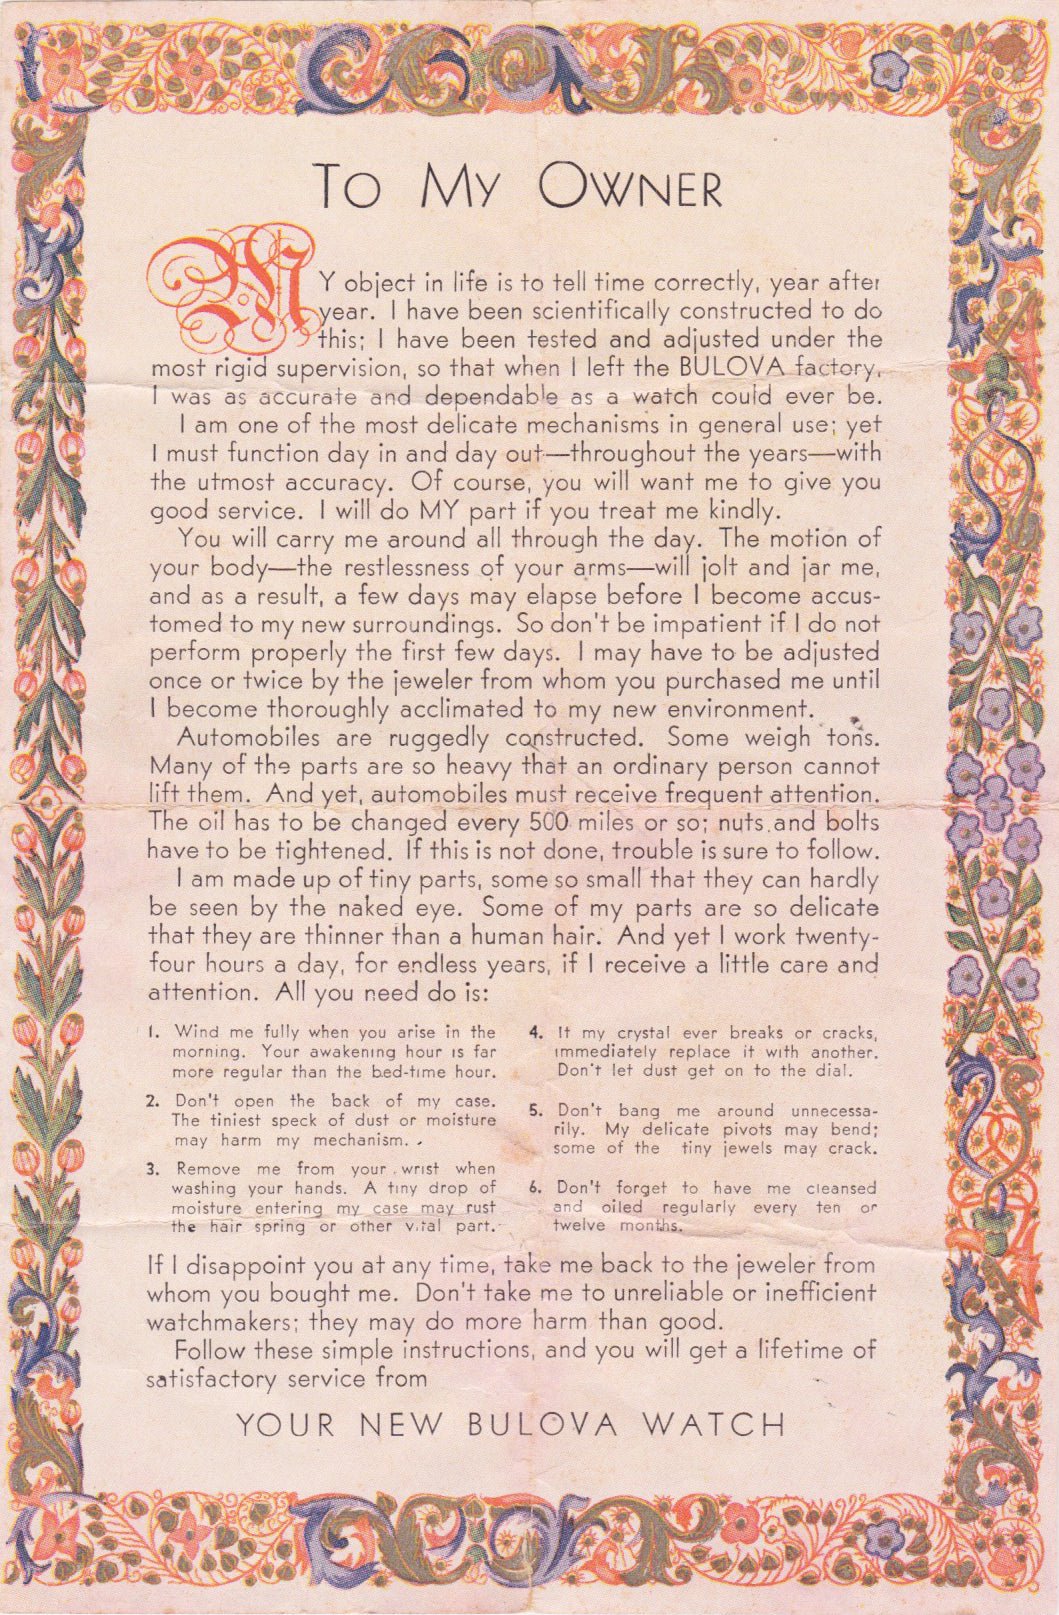 TO MY OWNER
MY object in life is to tell time correctly, year after
year. I have been scientifically constructed to do
this; I have been tested and adjusted under the
most rigid supervision, so that when I left the BULOVA factory,
I was as accurate and dependable as a watch could ever be.
I am one of the most delicate mechanisms in general use; yet
I must function day in and day out—throughout the years—with
the utmost accuracy. Of course, you will want me to give you
good service. I will do MY part if you treat me kindly.
You will carry me around all through the day. The motion of
your body—the restlessness of your arms—will jolt and jar me,
and as a result, a few days may elapse before I become accus-
tomed to my new surroundings. So don't be impatient if I do not
perform properly the first few days. I may have to be adjusted
once or twice by the jeweler from whom you purchased me until
I become thoroughly acclimated to my new environment.
Automobiles are ruggedly constructed. Some weigh tons.
Many of the parts are so heavy that an ordinary person cannot
lift them. And yet, automobiles must receive frequent attention.
The oil has to be changed every 500 miles or so; nuts and bolts
have to be tightened. If this is not done, trouble is sure to follow.
I am made up of tiny parts, some so small that they can hardly
be seen by the naked eye. Some of my parts are so delicate
that they are thinner than a human hair. And yet I work twenty-
four hours a day, for endless years, if I receive a little care and
attention. All you need do is:
1. Wind me fully when you arise in the
morning. Your awakening hour is far
more regular than the bed-time hour.
2. Don't open the back of my case.
The tiniest speck of dust or moisture
may harm my mechanism.
3. Remove me from your wrist when
washing your hands. A tiny drop of
moisture entering my case may rust
the hair spring or other vital part.
4. If my crystal ever breaks or cracks,
immediately replace it with another.
Don't let dust get on to the dial.
5. Don't bang me around unnecessa-
rily. My delicate pivots may bend;
some of the tiny jewels may crack.
6. Don't forget to have me cleansed
and oiled regularly every ten or
twelve months.
If I disappoint you at any time, take me back to the jeweler from
whom you bought me. Don't take me to unreliable or inefficient
watchmakers; they may do more harm than good.
Follow these simple instructions, and you will get a lifetime of
satisfactory service from
YOUR NEW BULOVA WATCH